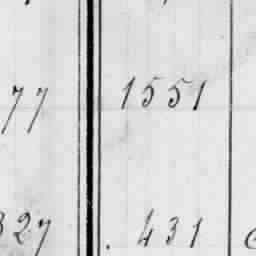 77 1551
327 . 431